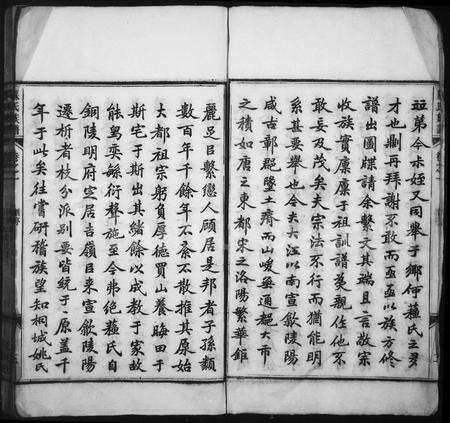 弟令水姪又同舉于鄉何種氏之多
才也則再拜謝不敢而亟亟以族方修
譜出圖牒請余繫文其端且言敬宗
收族實廩廩于祖訓譜羑觀佳他不
敢妄及茂矣夫宗法不行而猶能明
系甚要舉也今夫大江以南宣歙陵陽
咸古鄣郡墮土瘠而山峻無通都大市
之積如唐之東都宋之洛陽繁華鉅
麗足目繫戀人顧居是邦者子孫類
數百年千餘年不紊不散推其原始
大都祖宗躬負厚德買山養晦田于
斯宅于斯出其緒餘以成教于家故
能舃奕綿衍聲施至今弗絕種氏自
銅陵明府空居吉嶺目來宣歙陵陽
遷析者枝分派別要皆統于一原蓋千
年于此矣往嘗研稽族望知桐城姚氏